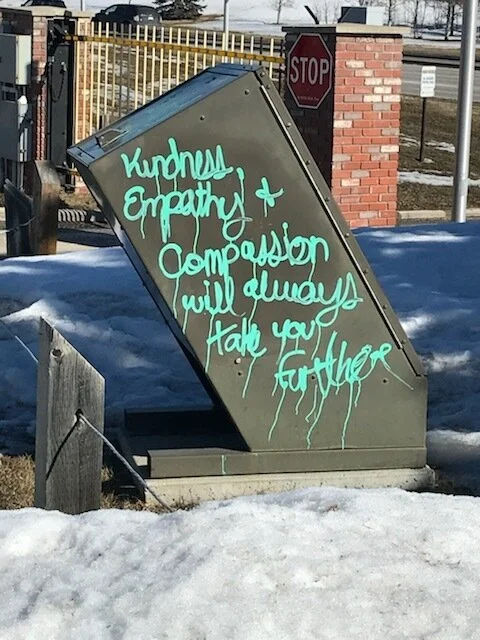 Kindness,
Empathy, +
Compassion
will always
take you
further
STOP